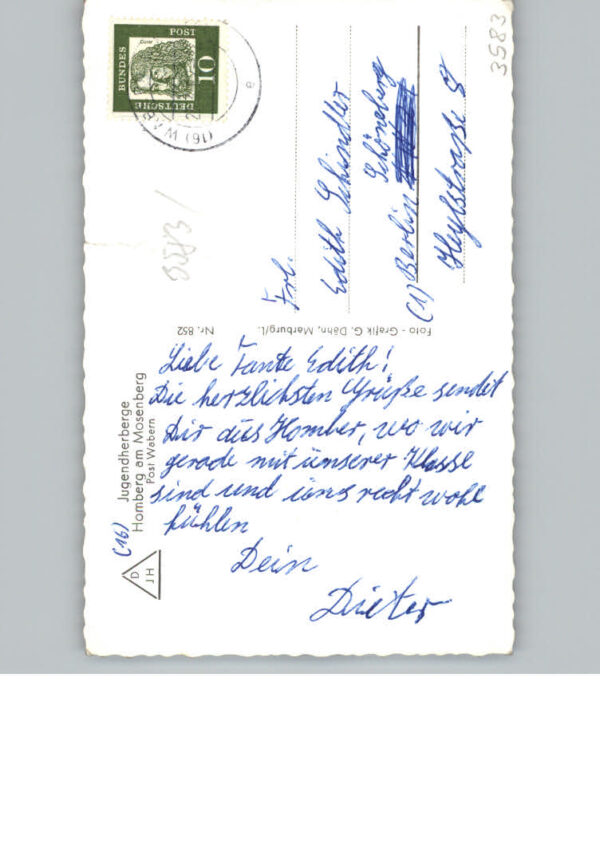 Liebe Tante Edith!
Die herzlichsten Grüße sendet
Dir aus Homber, wo wir
gerade mit unserer Klasse
sind und uns recht wohl
fühlen
Dein
Dieter
Frl.
Edith Schindler
(1) Berlin
Schöneberg
Heylstraße
Jugendherberge
Homberg am Mosenberg
Post Wabern
(16)
D
JH
Nr. 852
Foto - Grafik G. Dähn, Marburg/L.
DEUTSCHE
BUNDES
POST
10
(16) WAB
a
3583
3583/